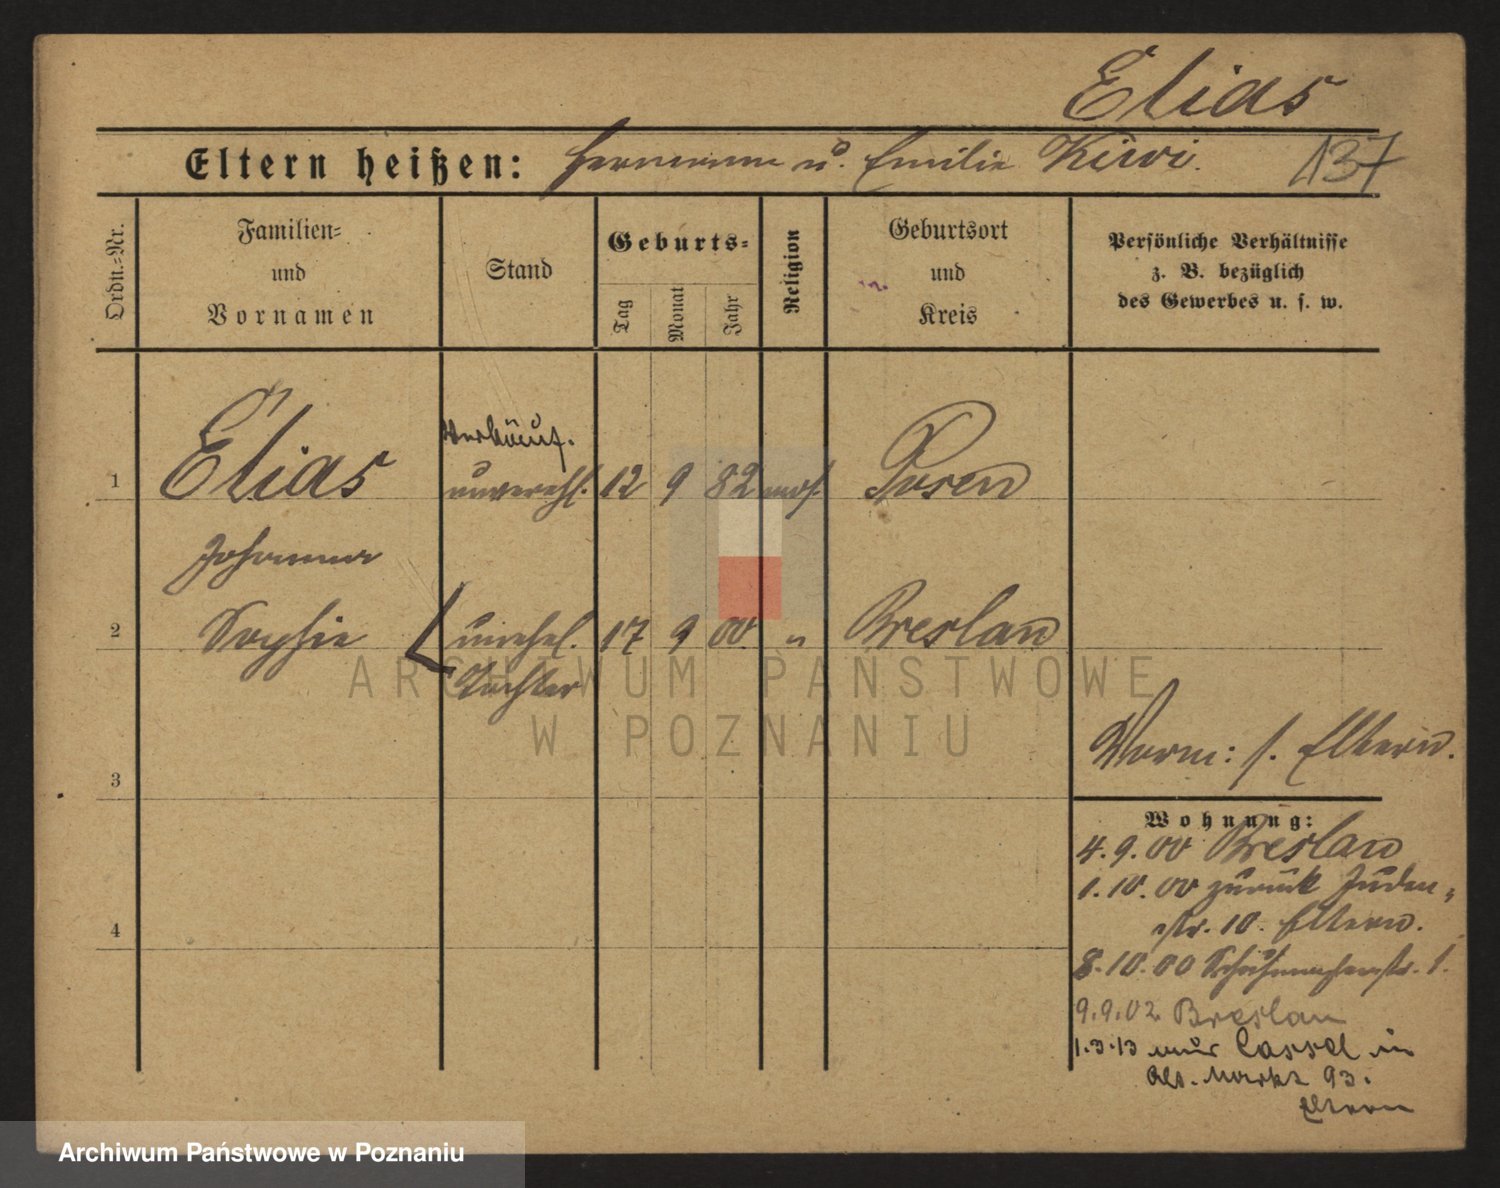 Elias
Eltern heißen: Hermann u. Emilie Kiwi. 137
Ordn.-Nr.
Familien-
und
Vornamen
Stand
Geburts-
Tag
Monat
Jahr
Religion
Geburtsort
und
Kreis
Persönliche Verhältnisse
z. B. bezüglich
des Gewerbes u. s. w.
Verkäuf.
1 Elias unverehl. 12 9 82 mos. Posen
Johanna
2 Sophie unehel. 17 9 00 " Breslau
Tochter
ARCHIWUM PAŃSTWOWE
W POZNANIU
Vorm: s. Eltern.
3
Wohnung:
4.9.00 Breslau
1.10.00 zurück Juden-
str. 10. Eltern.
4
8.10.00 Schuhmacherstr. 1.
9.9.02 Breslau
1.3.13 Cassel in
Alt. Markt 93.
Eltern
Archiwum Państwowe w Poznaniu